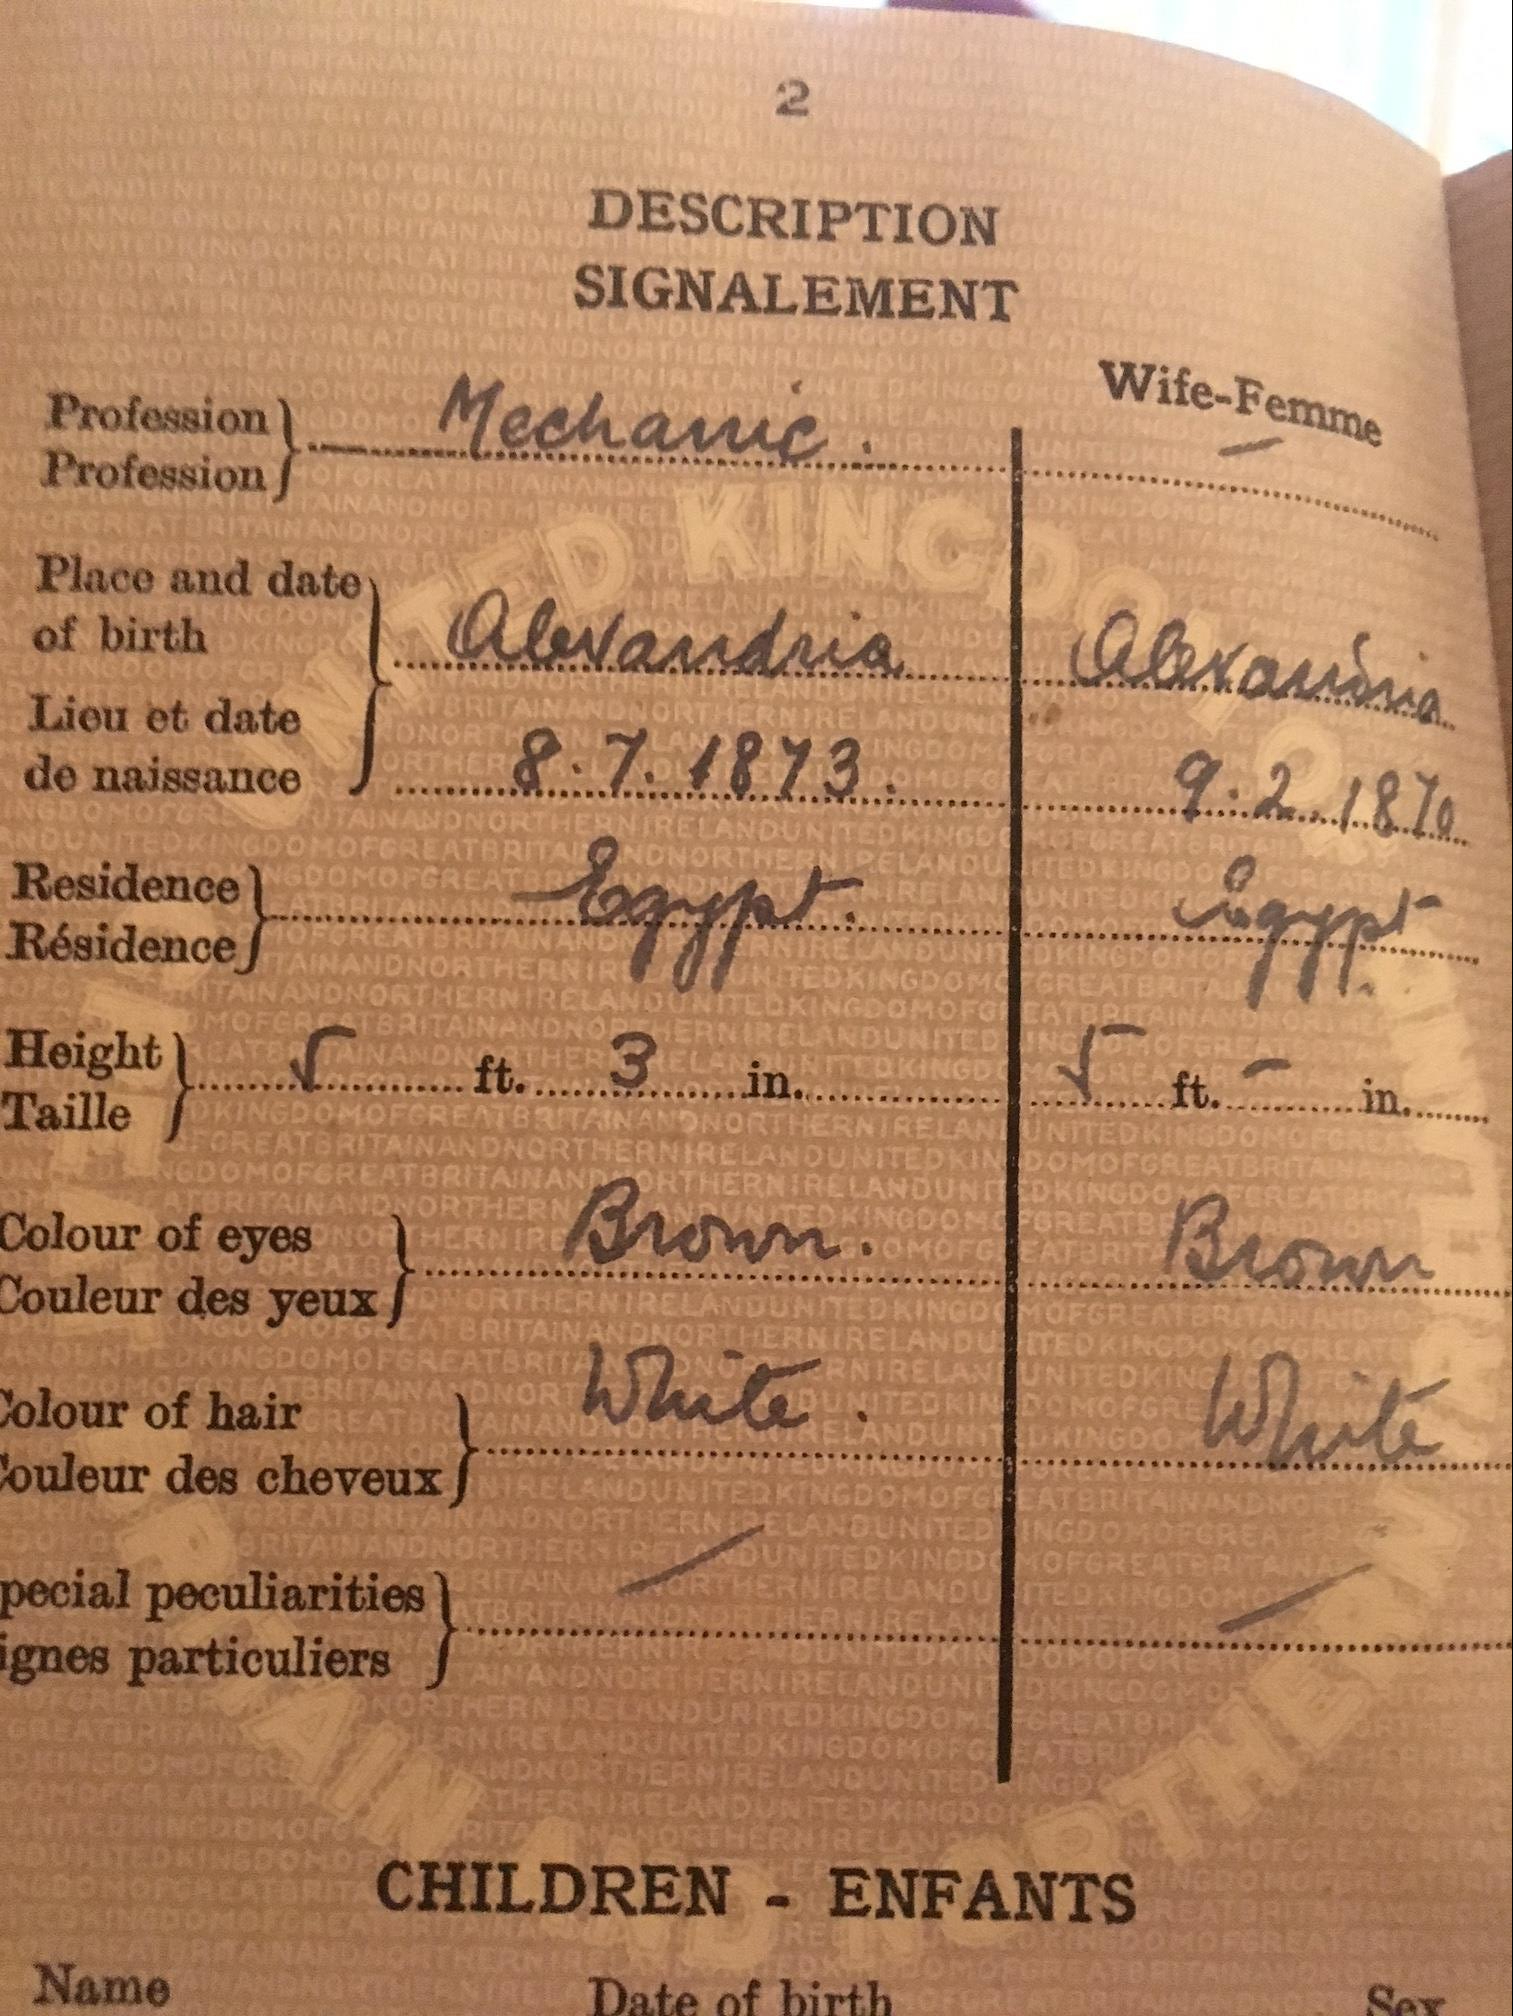 2
DESCRIPTION
SIGNALEMENT
Wife-Femme
Profession
Profession
Mechanic. —
Place and date
of birth
Alexandria Alexandria
Lieu et date
de naissance
8.7.1873. 9.2.1870
Residence
Résidence
Egypt. Egypt.
Height
Taille
5 ft. 3 in. 5 ft. - in.
Colour of eyes
Couleur des yeux
Brown. Brown
Colour of hair
Couleur des cheveux
White. White
pecial peculiarities
ignes particuliers
CHILDREN - ENFANTS
Name Date of birth Sex